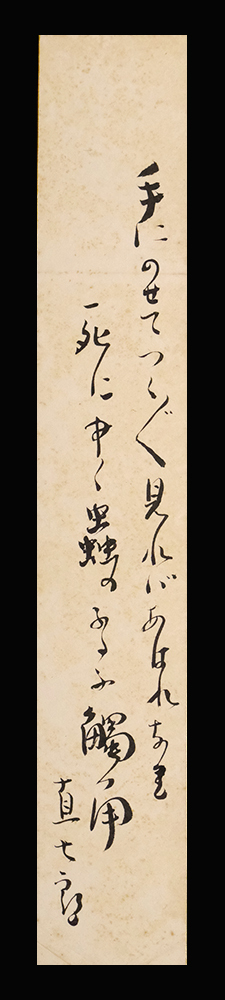 手にのせてつく/″\見ればあはれなり
死にゆく蟲のふるふ觸角
直七郎